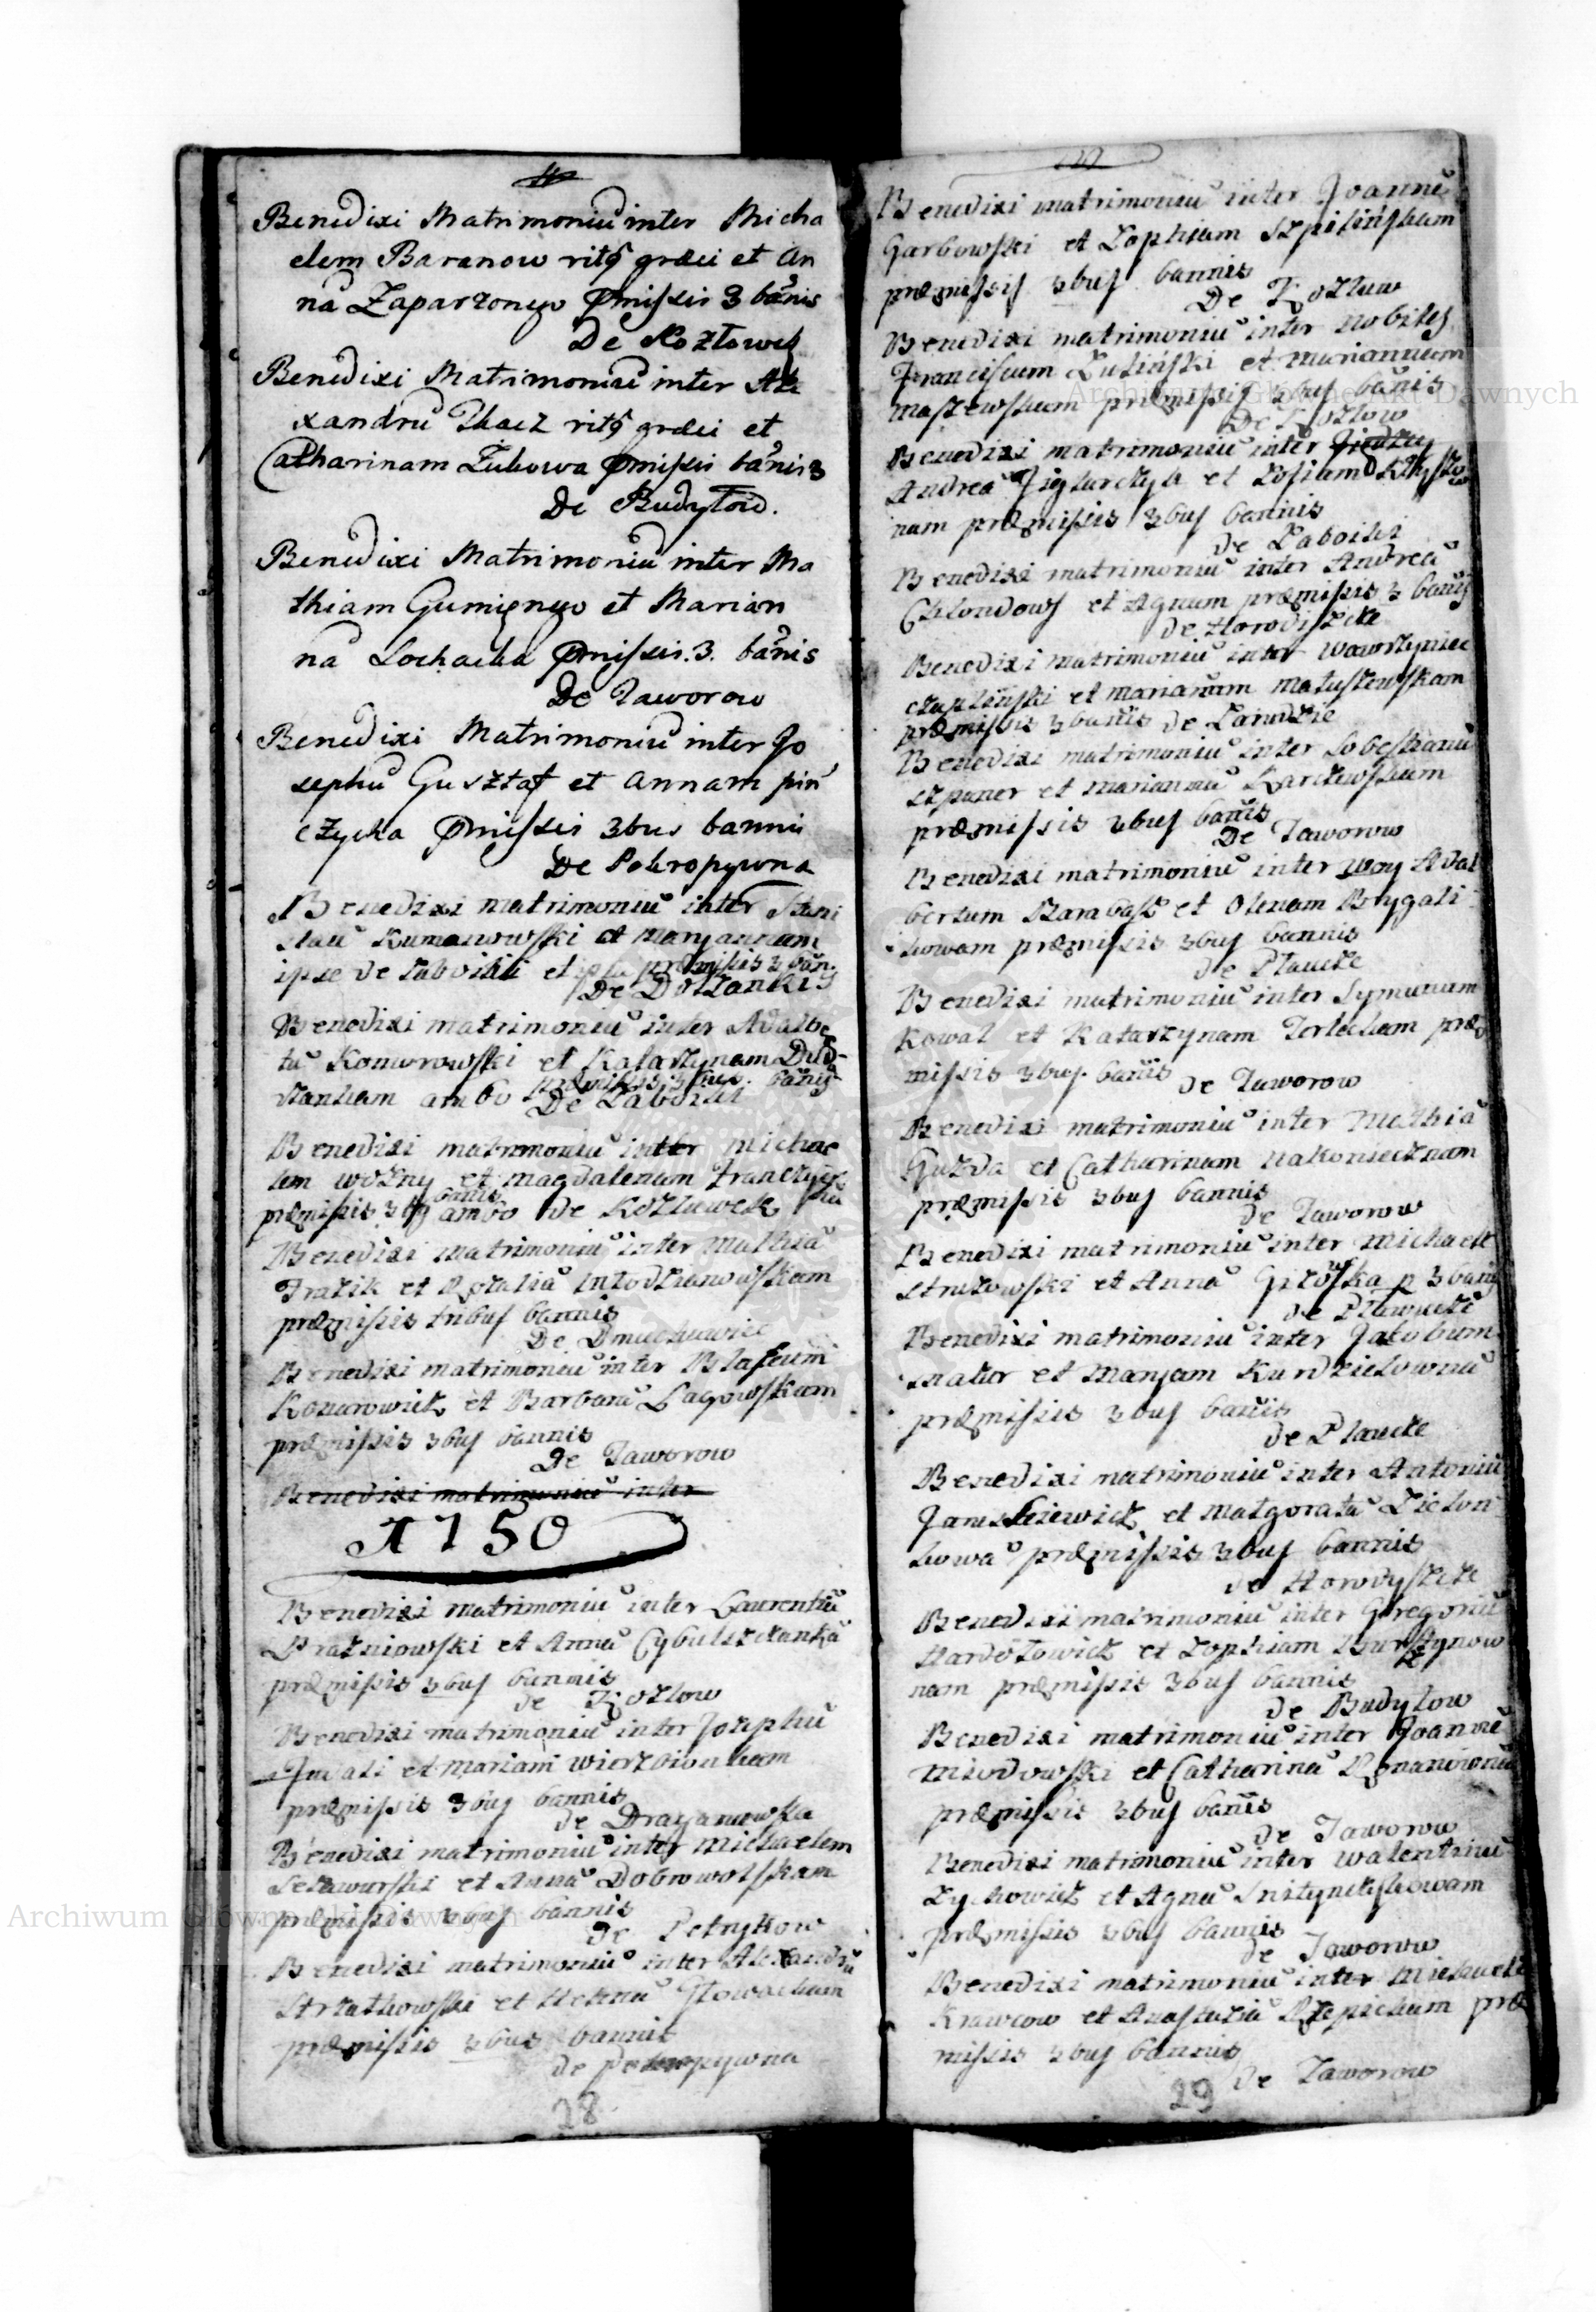 Benedixi Matrimoniũ inter Micha
elem Baranow ritg græci et An
nã Zaparzonyo pmissis 3 bãnis
De Kozłowek
Benedixi Matrimoniũ inter Ale
xandrũ Tkacz ritg græci et
Catharinam Zubowa pmissis bãnis 3
De Budyłow.
Benedixi Matrimoniũ inter Ma
thiam Gumięnyo et Marian
nã Lochacka pmissis. 3. bãnis
De Jaworow
Benedixi Matrimoniũ inter Jo
sephũ Gusztaf et Annam pin
czycka pmissis 3bus bannis
De Pokropywna
Benedixi matrimoniũ inter Stani
slaũ Kumanowski et Maryannam
ipse de Taboiki et ipsa præmissis 3 bãn.
De Dołzanki
Benedixi matrimoniũ inter Adalbe
tũ Komorowski et Katarzynam Dud
ambo præmissis 3bus. bãnis
De Zaboiki
Benedixi matrimoniũ inter Michae
lem Wozny et Magdalenam
præmissis 3bg bãnis ambo de Kozlowek
Benedixi matrimoniũ inter Mathiã
Fratik et Rozaliã Wlodzianowskam
præmissis tribus bannis
De Dmuchawice
Benedixi matrimoniũ inter Blaseum
Komarowicz et Barbarã Lagowskam
præmissis 3bus bannis
De Jaworow
Benedixi matrimoniũ inter
1750
Benedixi matrimoniũ inter Laurentiũ
Prazniowski et Annã Cybulszczankã
præmissis 3bus bannis
de Kozlow
Benedixi matrimoniũ inter Jozephũ
et Mariam Wierzbicukam
præmissis 3bus bannis
de Draganowka
Benedixi matrimoniũ inter Michaelem
et Annã Dobrowolskam
præmissis 3bus bannis
de Petrykow
Benedixi matrimoniũ inter Alexandrũ
Strzalkowski et Helenã Głowackam
præmissis 3bus bannis
de Pokropywna
28
Benedixi matrimoniũ inter Joannẽ
Garbowski et Zophiam Szpilińskam
præmissis 3bus bannis
De Kozlow
Benedixi matrimoniũ inter Nobiles
Franciscum Luliński et Mariannam
Maszewskam præmissis 3bus bãnis
De Kozlow
Benedixi matrimoniũ inter
Andreã et Zofiam
nam præmissis 3bus bannis
de Zaboiki
Benedixi matrimoniũ inter Andreã
Chlondows et Agnam præmissis 3 bãnis
de Horodiszcze
Benedixi matrimoniũ inter Wawrzyniec
Czapliński et Mariannam Matuszewskam
præmissis 3 bãnis de
Benedixi matrimoniũ inter Sobestianũ
Szpaner et Mariannã Karczewskam
præmissis 3bus bãnis
De Jaworow
Benedixi matrimoniũ inter Woy Adal
bertum Barabasz et Olenam Brygali
kowam præmissis 3bus bannis
de Plaucze
Benedixi matrimoniũ inter Symunam
Kowal et Katarzynam Terleckam præ
missis 3bus bãnis
de Jaworow
Benedixi matrimoniũ inter Mathiã
Guzda et Catharinam Nakoniecznam
præmissis 3bus bannis
de Jaworow
Benedixi matrimoniũ inter Michaele
Strutowski et Annã p 3 bãnis
de Plawucze
Benedixi matrimoniũ inter Jakobum
Snatur et Maryam Kurdzielownã
præmissis 3bus bãnis
de Plaucze
Benedixi matrimoniũ inter Antoniũ
et Malgoratã Zielon
kowã præmissis 3bus bannis
de Horodyszcze
Benedixi matrimoniũ inter Gregoriũ
et Zophiam Bursztynow
nam præmissis 3bus bannis
de Budyłow
Benedixi matrimoniũ inter Joannẽ
Miodowski et Catharinã
præmissis 3bus bãnis
de Jaworow
Benedixi matrimoniũ inter Walentinũ
Zychowicz et Agnã
præmissis 3bus bannis
de Jaworow
Benedixi matrimoniũ inter Michaele
Krawcow et Anastaziã Rzepickam præ
missis 3bus bannis
de Jaworow
29
Archiwum Główne Akt Dawnych
Archiwum Główne Akt Dawnych